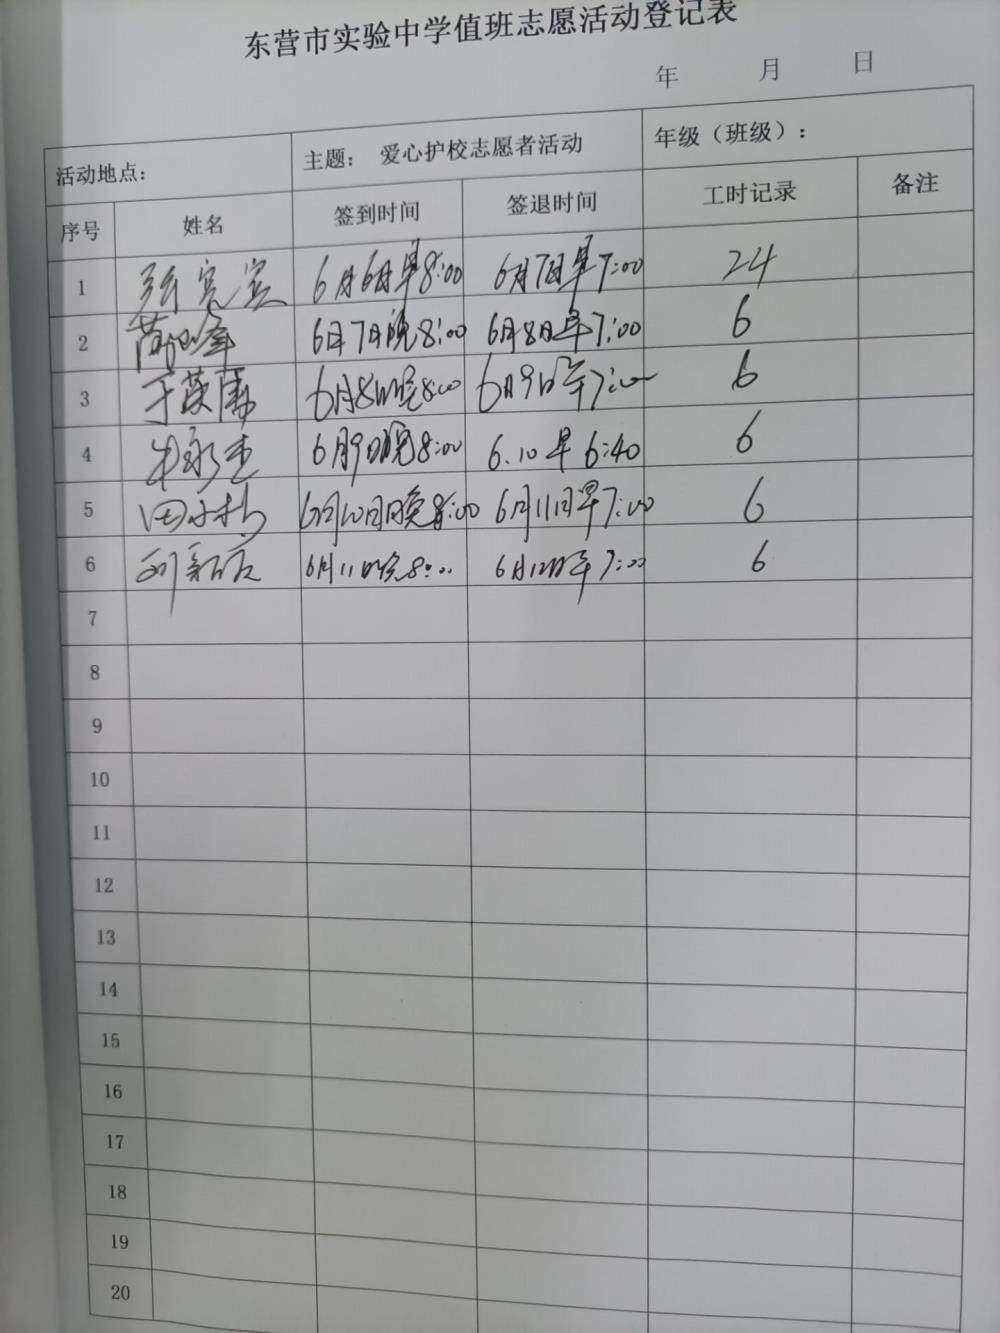 东营市实验中学值班志愿活动登记表
年 月 日
活动地点： 主题： 爱心护校志愿者活动 年级（班级）：
序号 姓名 签到时间 签退时间 工时记录 备注
1 6月6日早8:00 6月7日早7:00 24
2 6月7日晚8:00 6月8日早7:00 6
3 6月8日晚8:00 6月9日早7:00 6
4 6月9日晚8:00 6.10早6:40 6
5 6月10日晚8:00 6月11日早7:00 6
6 6月11日晚8:00 6月12日早7:00 6
7
8
9
10
11
12
13
14
15
16
17
18
19
20